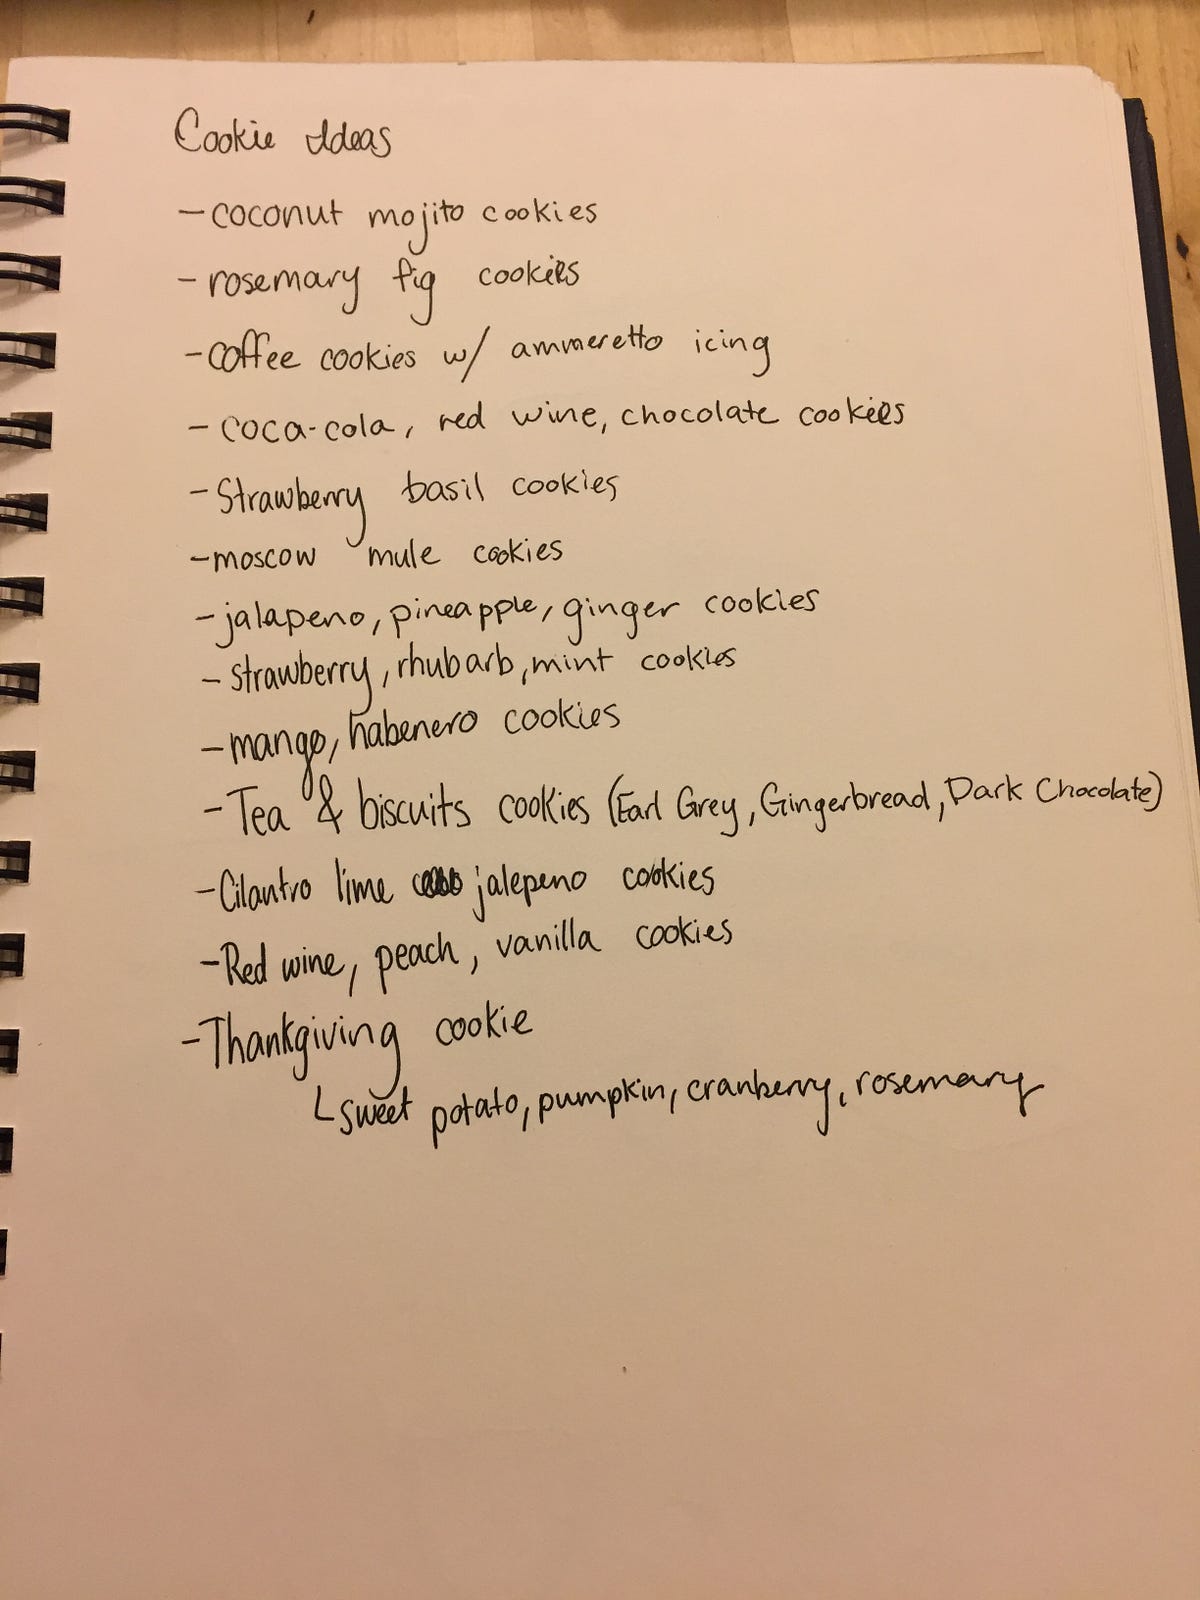 Cookie Ideas
- coconut mojito cookies
- rosemary fig cookies
- coffee cookies w/ ammeretto icing
- coca-cola, red wine, chocolate cookies
- Strawberry basil cookies
- moscow mule cookies
- jalapeno, pineapple, ginger cookies
- strawberry, rhubarb, mint cookies
- mango, habenero cookies
- Tea & biscuits cookies (Earl Grey, Gingerbread, Dark Chocolate)
- Cilantro lime jalepeno cookies
- Red wine, peach, vanilla cookies
- Thankgiving cookie
└ sweet potato, pumpkin, cranberry, rosemary